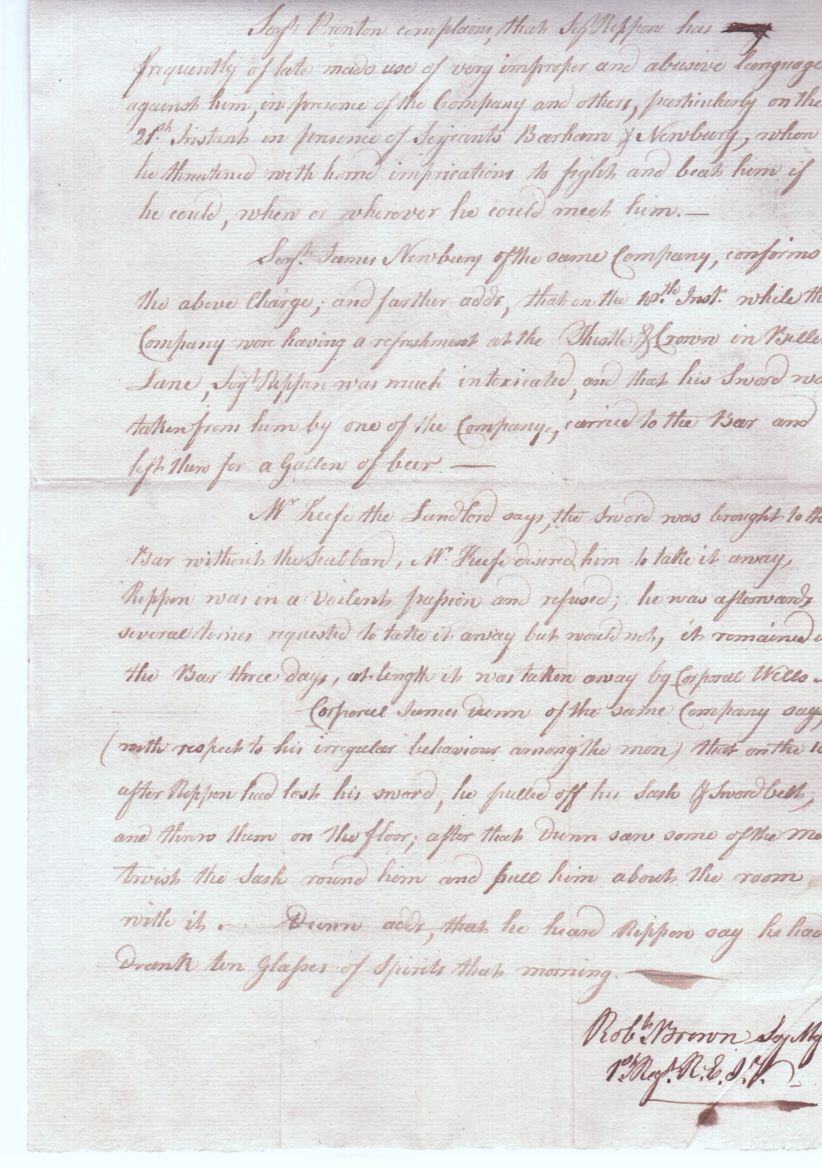 Serjt. Prenton complains, that Serjt. Rippon has
frequently of late made use of very improper and abusive language
against him, in presence of the Company and others, particularly on the
21st. Instant in presence of Serjeants Barham & Newbury, when
he threatined with horrid imprications to fight and beat him if
he could, when or wherever he could meet him. —
Serjt. James Newbury of the same Company, confirms
the above Charge; and farther adds, that on the 10th. Inst. while the
Company were having a refreshment at the Thistle & Crown in
Lane, Serjt. Rippon was much intoxicated, and that his Sword
taken from him by one of the Company, carried to the Bar and
left there for a Gallon of beer —
Mr. Keefe the Landlord says, the Sword was brought to the
Bar without the Scabbard, Mr. Keefe desired him to take it away,
Rippon was in a voilent passion and refused; he was afterwards
several times requested to take it away but would not, it remained
the Bar three days, at length it was taken away by Corporal Wells
Corporal James Dunn of the same Company says,
(with respect to his irregular behaviour among the men) that on the
after Rippon had lost his sword, he pulled off his Sash & Swordbelt,
and threw them on the floor; after that Dunn saw some of the
twist the Sash round him and pull him about the room
with it. Dunn adds, that he heard Rippon say he had
drank ten Glasses of Spirits that morning. —
Robt. Brown Serj Maj
1st. Regt. R. E. I. V.